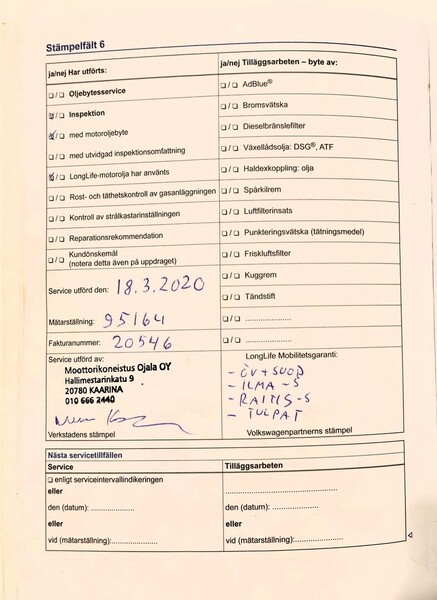 Stämpelfält 6
ja/nej Har utförts:
Oljebytesservice
Inspektion
med motoroljebyte
med utvidgad inspektionsomfattning
LongLife-motorolja har använts
Rost- och täthetskontroll av gasanläggningen
Kontroll av strålkastarinställningen
Reparationsrekommendation
Kundönskemål
(notera detta även på uppdraget)
Service utförd den: 18.3.2020
Mätarställning: 95164
Fakturanummer: 20546
Service utförd av:
Moottorikoneistus Ojala OY
Hallimestarinkatu 9
20780 KAARINA
010 666 2440
Verkstadens stämpel
ja/nej Tilläggsarbeten – byte av:
AdBlue®
Bromsvätska
Dieselbränslefilter
Växellådsolja: DSG®, ATF
Haldexkoppling: olja
Spårkilrem
Luftfilterinsats
Punkteringsvätska (tätningsmedel)
Friskluftsfilter
Kuggrem
Tändstift
.....................
.....................
LongLife Mobilitetsgaranti:
- ÖV + SUOD
- ILMA -S
- RAITIS-S
- TULPAT
Volkswagenpartnerns stämpel
Nästa servicetillfällen
Service
enligt serviceintervallindikeringen
eller
den (datum): .....................
eller
vid (mätarställning):.....................
Tilläggsarbeten:
.....................
eller
den (datum): .....................
eller
vid (mätarställning):.....................